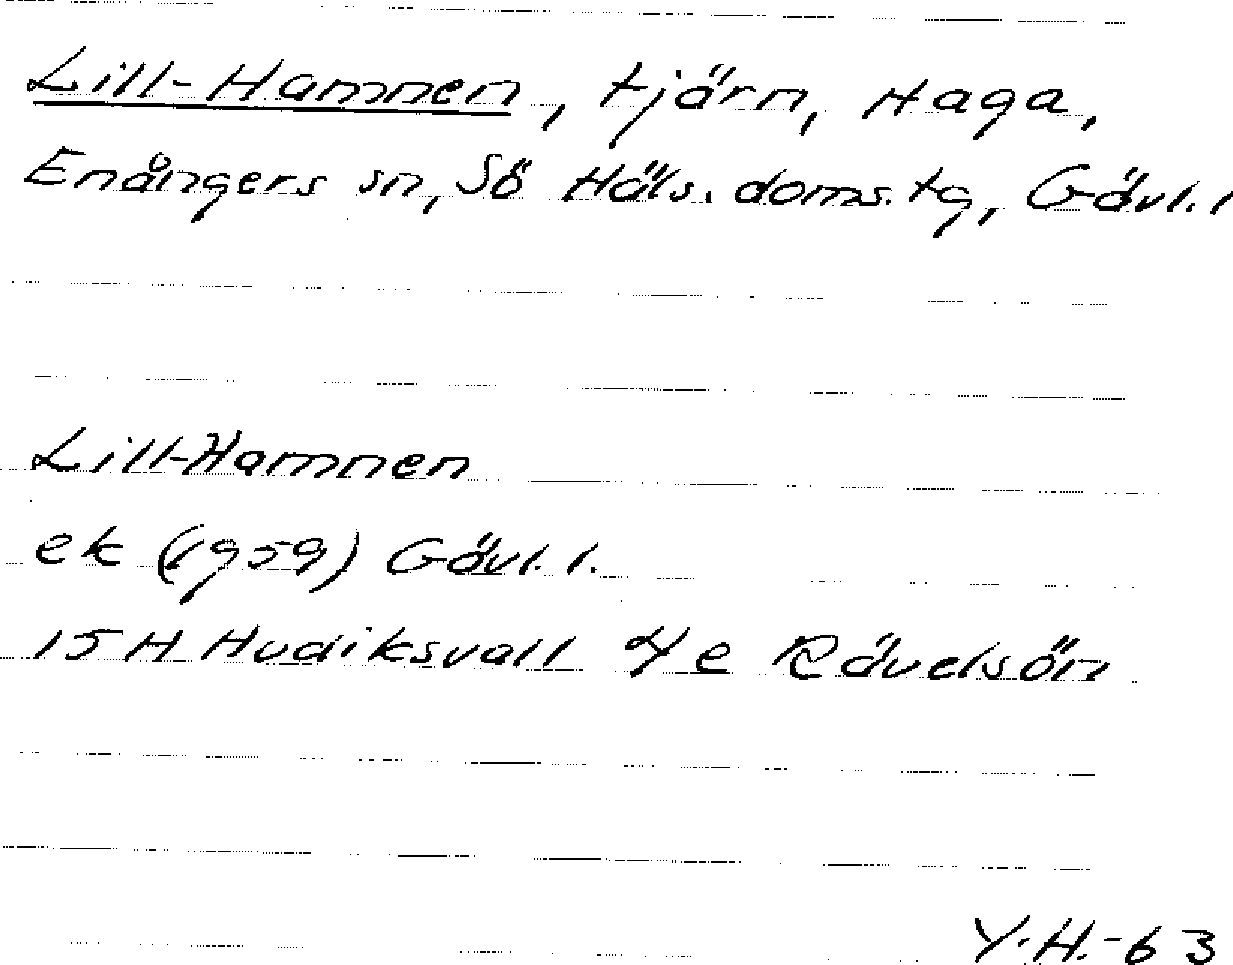 Lill-Hamnen, tjärn, Haga,
Enångers sn, Sö Häls. doms. tg, Gävl. l
Lill-Hamnen
ek (1959) Gävl. l.
15 H Hudiksvall e Rävelsön
Y.H.-63